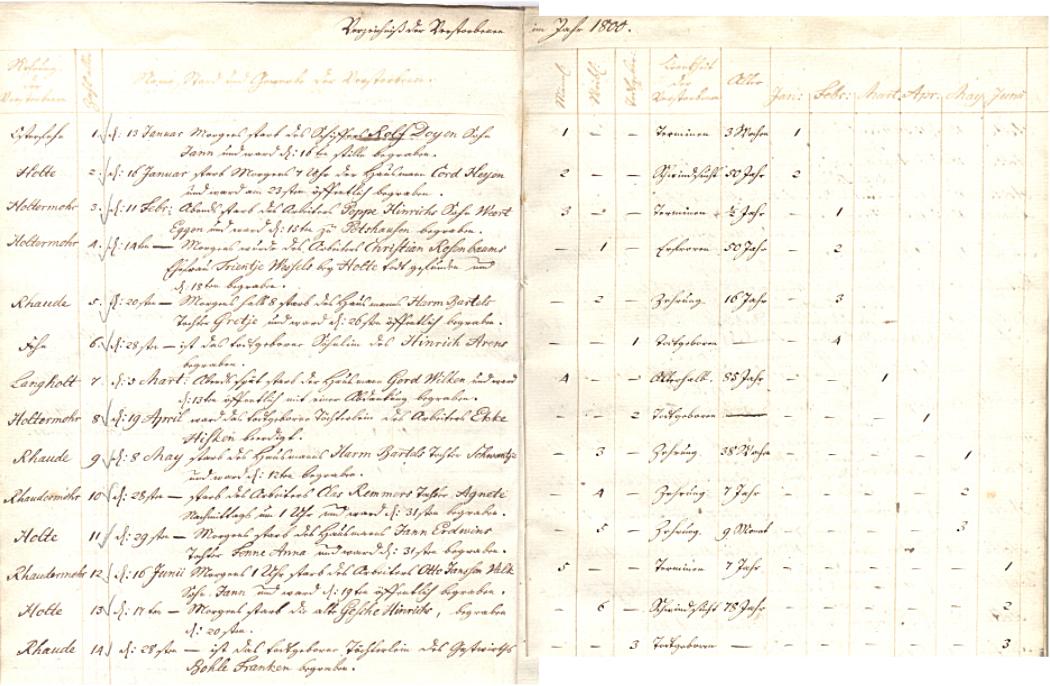 Verzeichniß der Verstorbenen im Jahr 1800.
Wohnung der Verstorbenen
Name, Stand und Gewerbe der Verstorbenen.
Männl. Weibl. Krankheit der Verstorbenen Alter Jan: Febr: Mart. Apr. May Junii
1. d: 13 Januar Morgens starb des Schiffers Rolf Doyen Sohn 1 – – 3 Wochen 1
Jann und ward d: 16ten stille begraben.
Holte 2. d: 16 Januar starb Morgens 7 Uhr der Hausmann Cord Heyen 2 – – Schwindsucht 50 Jahr 2
und ward am 23sten öffentlich begraben.
Holtermohr 3. d: 11 Febr: Abends starb des Arbeiters Poppe Hinrichs Sohn Weert 3 – – ½ Jahr – 1
Eggen und ward d: 15ten zu Potshausen begraben.
Holtermohr 4. d: 14ten — Morgens wurde des Arbeiters Christian Rosenbaums – 1 – Erfroren 50 Jahr – 2
Ehefrau Trientje Wessels bey Holte todt gefunden und
d. 18ten begraben.
Rhaude 5. d: 20sten — Morgens halb 8 starb des Hausmanns Harm Bartels – 2 – Zehrung 16 Jahr – 3
Tochter Gretje und ward d: 26sten öffentlich begraben.
6. d: 28sten — ist das todtgeborne Söhnlein des Hinrich Arens – – 1 Todtgeboren — – 4
begraben.
Langholt 7. d: 3 Mart: Abends spät starb der Hausmann Gerd Wilken und ward 4 – – 85 Jahr – – 1
d: 13ten öffentlich mit einer Abdankung begraben.
Holtermohr 8. d: 19 April ward das todtgeborne Töchterlein des Arbeiters – – 2 Todtgeboren — – – – 1
beerdigt.
Rhaude 9. d: 8 May starb des Hausmanns Harm Bartels Tochter – 3 – Zehrung 38 Wochen – – – – 1
und ward d: 12ten begraben.
Rhaudermohr 10. d: 28sten — starb des Arbeiters Claas Remmers Tochter Agnete – 4 – Zehrung 7 Jahr – – – – 2
Nachmittags um 1 Uhr und ward d: 31sten begraben.
Holte 11. d: 29sten — Morgens starb des Hausmanns Jann Erdwins – 5 – Zehrung 9 Monat – – – – 3
Tochter Fenne Anna und ward d: 31sten begraben.
Rhaudermohr 12. d: 16 Junii Morgens 1 Uhr starb des Arbeiters Otto Janssen 5 – – 7 Jahr – – – – – 1
Sohn Jann und ward d: 19ten öffentlich begraben.
Holte 13. d: 17ten — Morgens starb die alte Gesche Hinrichs, begraben – 6 – Schwindsucht 78 Jahr – – – – – 2
d: 20sten.
Rhaude 14. d: 28sten — ist das todtgeborne Töchterlein des Gastwirths – – 3 Todtgeboren — – – – – – 3
Bohle Franken begraben.